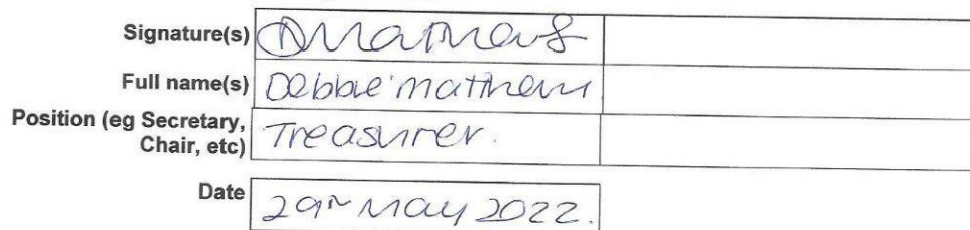 Signature(s) DMatthews
Full name(s) Debbie Matthews
Position (eg Secretary,
Chair, etc) Treasurer.
Date 29th May 2022.